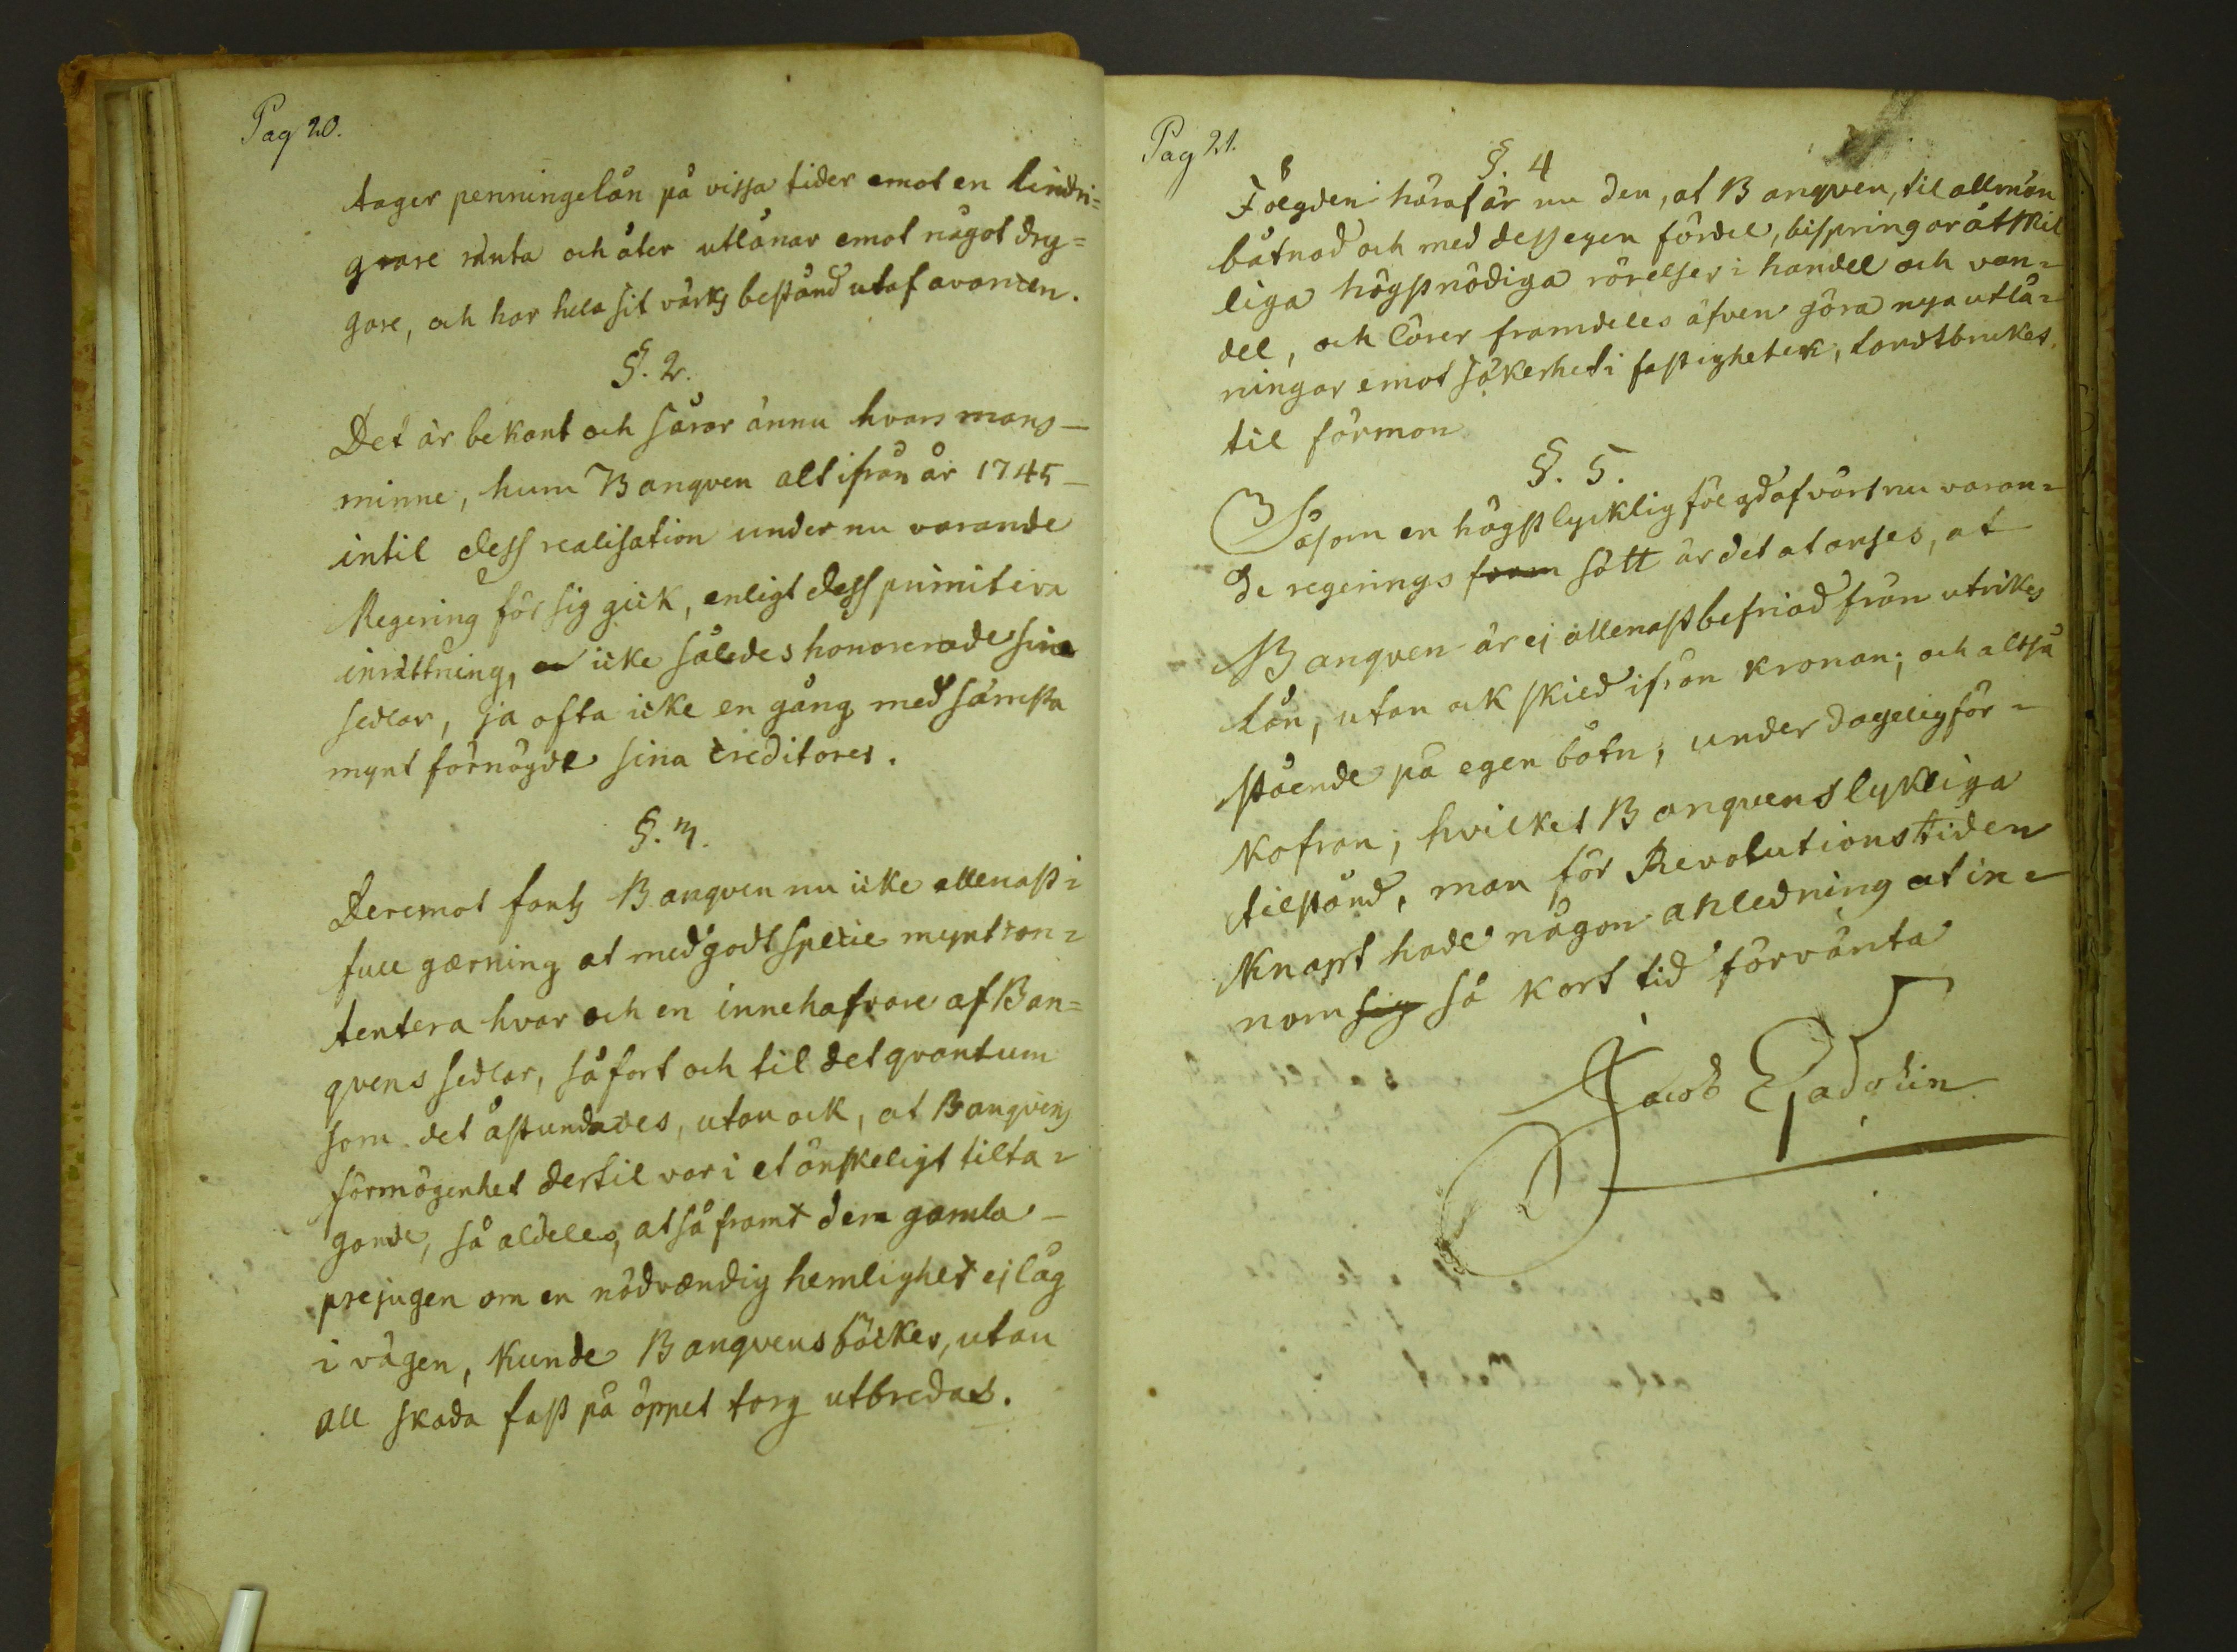 Pag 20.
tager penningelån på vissa tider emot en lindri=
gare ränta och åter utlånar emot något dry=
gare, och har hela sit värks bestånd utaf avancen.
§. 2.
Det är bekant och sårar ännu hvars mans
minne, huru Banqven alt ifrån år 1745
intil dess realisation under nu varande
Regering för sig gick, enligt dess primitiva
inrättning, icke således honorerade sina
sedlar, ja ofta icke en gång med sämsta
mynt förnögde sina creditores.
§. 3.
Deremot fants Banqven nu icke allenast i
full gærning at med godt specie mynt con=
tentera hvar och en innehafvare af Ban=
qvens sedlar, så fort och til det qvantum
som det åstundades, utan ock, at Banqvens
förmögenhet dertil var i et önskeligt tilta=
gande, så aldeles, at så framt den gamla
prejugen om en nödvændig hemlighet ej låg
i vägen, kunde Banqvens böcker, utan
all skada fast på öppet torg utbredas.
Pag 21.
§. 4
Fölgden häraf är nu den, at Banqven, til allmän
båtnad och med dess egen fördel, bispringar åtskil
liga högstnödiga rörelser i handel och van=
del, och lärer framdeles äfven göra nya utlå=
ningar emot säkerhet i fastigheter, landtbrukes
til förmon
§. 5.
Såsom en högst lycklig fölgd af vårt nu varan=
de regerings form sätt är det at anses, at
Banqven är ej allenast befriad från utrikes
lån, utan ock skild ifrån kronan; och altså
stående på egen botn, under dagelig för=
kofran; hvilket Banqvens lykliga
tilstånd, man för Revolutionstiden
knapt hade någon anledning at in=
nom sig så kort tid förvänta
Jacob Gadolin